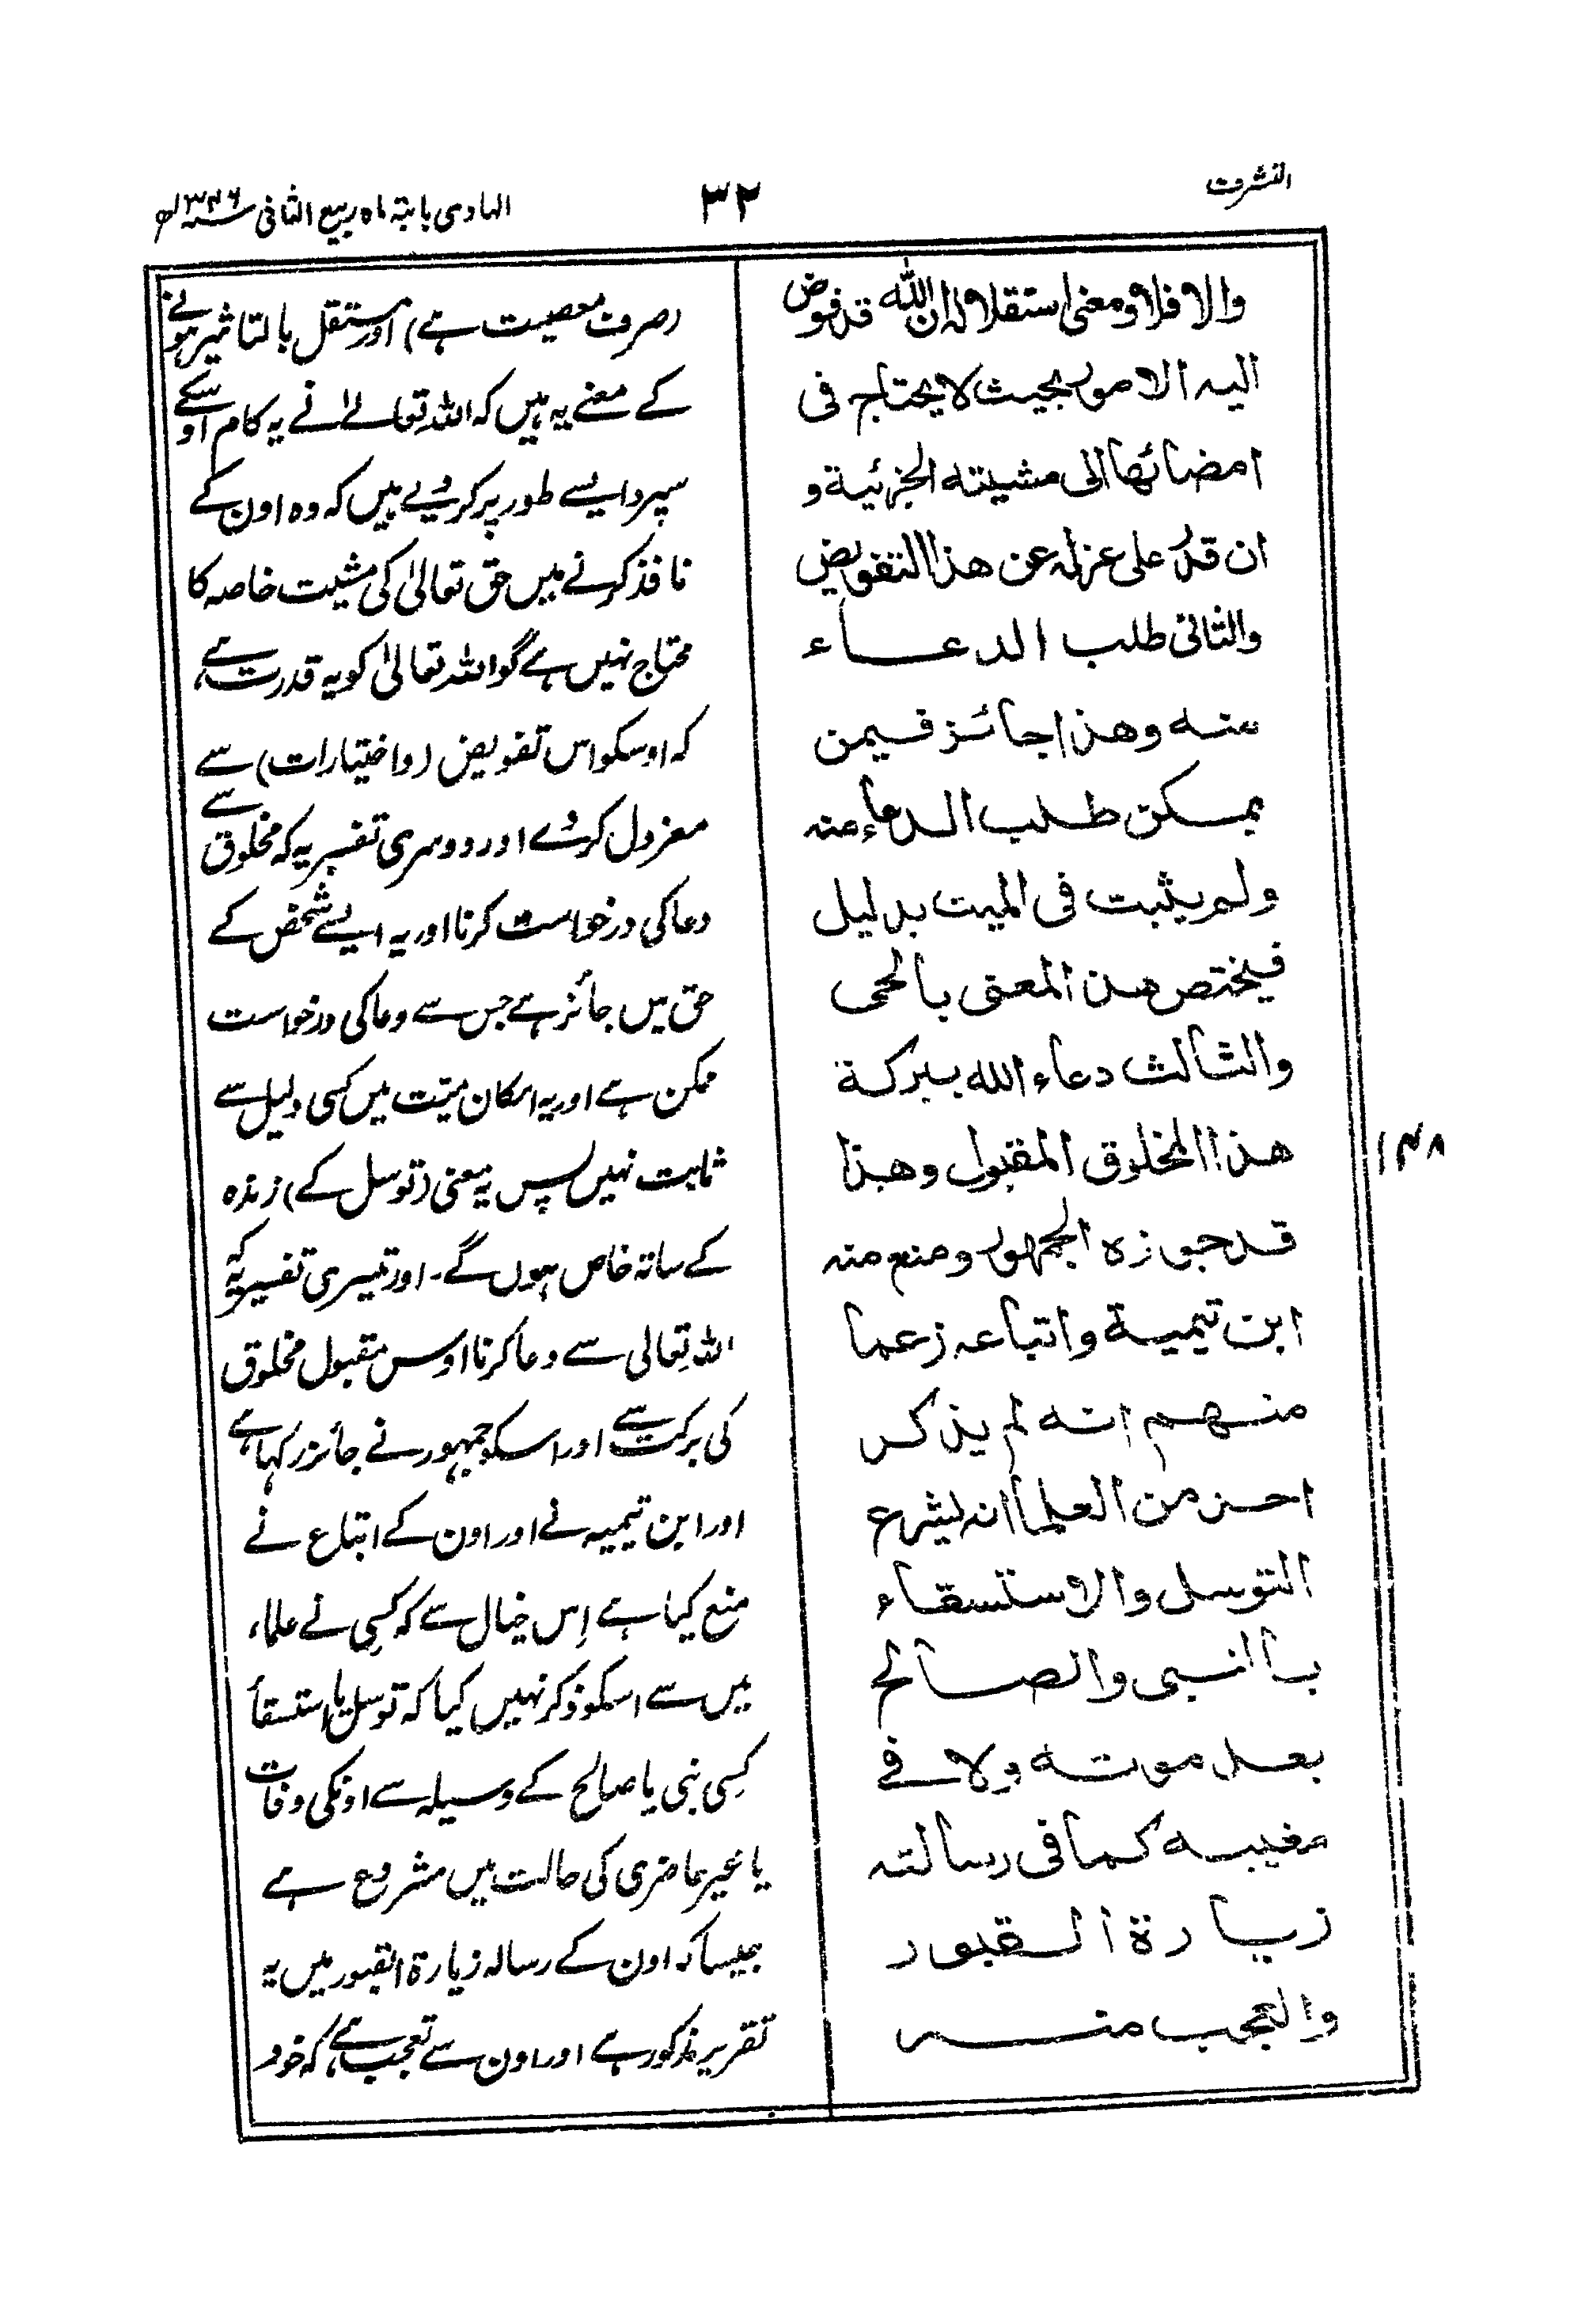 التشرف
۳۲
الہادی بابتہ ماہ ربیع الثانی سنہ ۱۳۴۶ھ
والا فلا ومعنی استقلالہ ان اللہ قد فوض
الیہ الامور بحیث لا یحتاج فی
امضائھا الی مشیتہ الجزئیة و
ان قدر علی عزلہ عن ھذا التفویض
والثانی طلب الدعاء
منہ وھذا جائز فیمن
یمکن طلب الدعاء منہ
ولم یثبت فی المیت بدلیل
فیختص ھذا المعنی بالحی
والثالث دعاء اللہ ببرکة
ھذا المخلوق المقبول وھذا
قد جوزہ الجمھور ومنع منہ
ابن تیمیة واتباعہ زعما
منھم انہ لم یذکر
احد من العلما انہ یشرع
التوسل والاستسقاء
بالنبی والصالح
بعد موتہ ولا فے
مغیبہ کما فی رسالتہ
زیارة القبور
والعجب منہ
۱۴۸
(صرف معصیت ہے) اور مستقل بالتاثیر ہونے
کے معنے یہ ہیں کہ اللہ تعالےٰ نے یہ کام اوسکے
سپرد ایسے طور پر کر دیے ہیں کہ وہ اون کے
نافذ کرنے میں حق تعالیٰ کی مشیت خاصہ کا
محتاج نہیں ہے گو اللہ تعالیٰ کو یہ قدرت ہے
کہ اوسکو اس تفویض (و اختیارات) سے
معزول کر دے اور دوسری تفسیر یہ کہ مخلوق سے
دعا کی درخواست کرنا اور یہ ایسے شخص کے
حق میں جائز ہے جس سے دعا کی درخواست
ممکن ہے اور یہ امکان میّت میں کسی دلیل سے
ثابت نہیں پس یہ معنی (توسل کے) زندہ
کے ساتہ خاص ہوں گے۔ اور تیسری تفسیر یہ کہ
اللہ تعالی سے دعا کرنا اوس مقبول مخلوق
کی برکت سے اور اسکو جمہور نے جائز رکہا ہے
اور ابن تیمیہ نے اور اون کے اتباع نے
منع کیا ہے اِس خیال سے کہ کسِی نے علماء
میں سے اسکو ذکر نہیں کیا کہ توسل یا استسقأ
کسِی نبی یا صالح کے وسیلہ سے اونکی وفات
یا غیر حاضری کی حالت میں مشروع ہے
جیسا کہ اون کے رسالہ زیارة القبور میں یہ
تقریر مذکور ہے اور اون سے تعجب ہے کہ خود